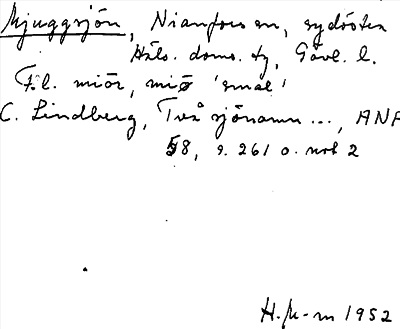 Mjuggsjön, Nianfors sn, sydöstra
Häls. doms. tg, Gävl. l.
Fsl. mior, mio 'smal'
C. Lindberg, Två sjönamn ..., ANF
58, s. 261 o. not 2
H. M-m 1952